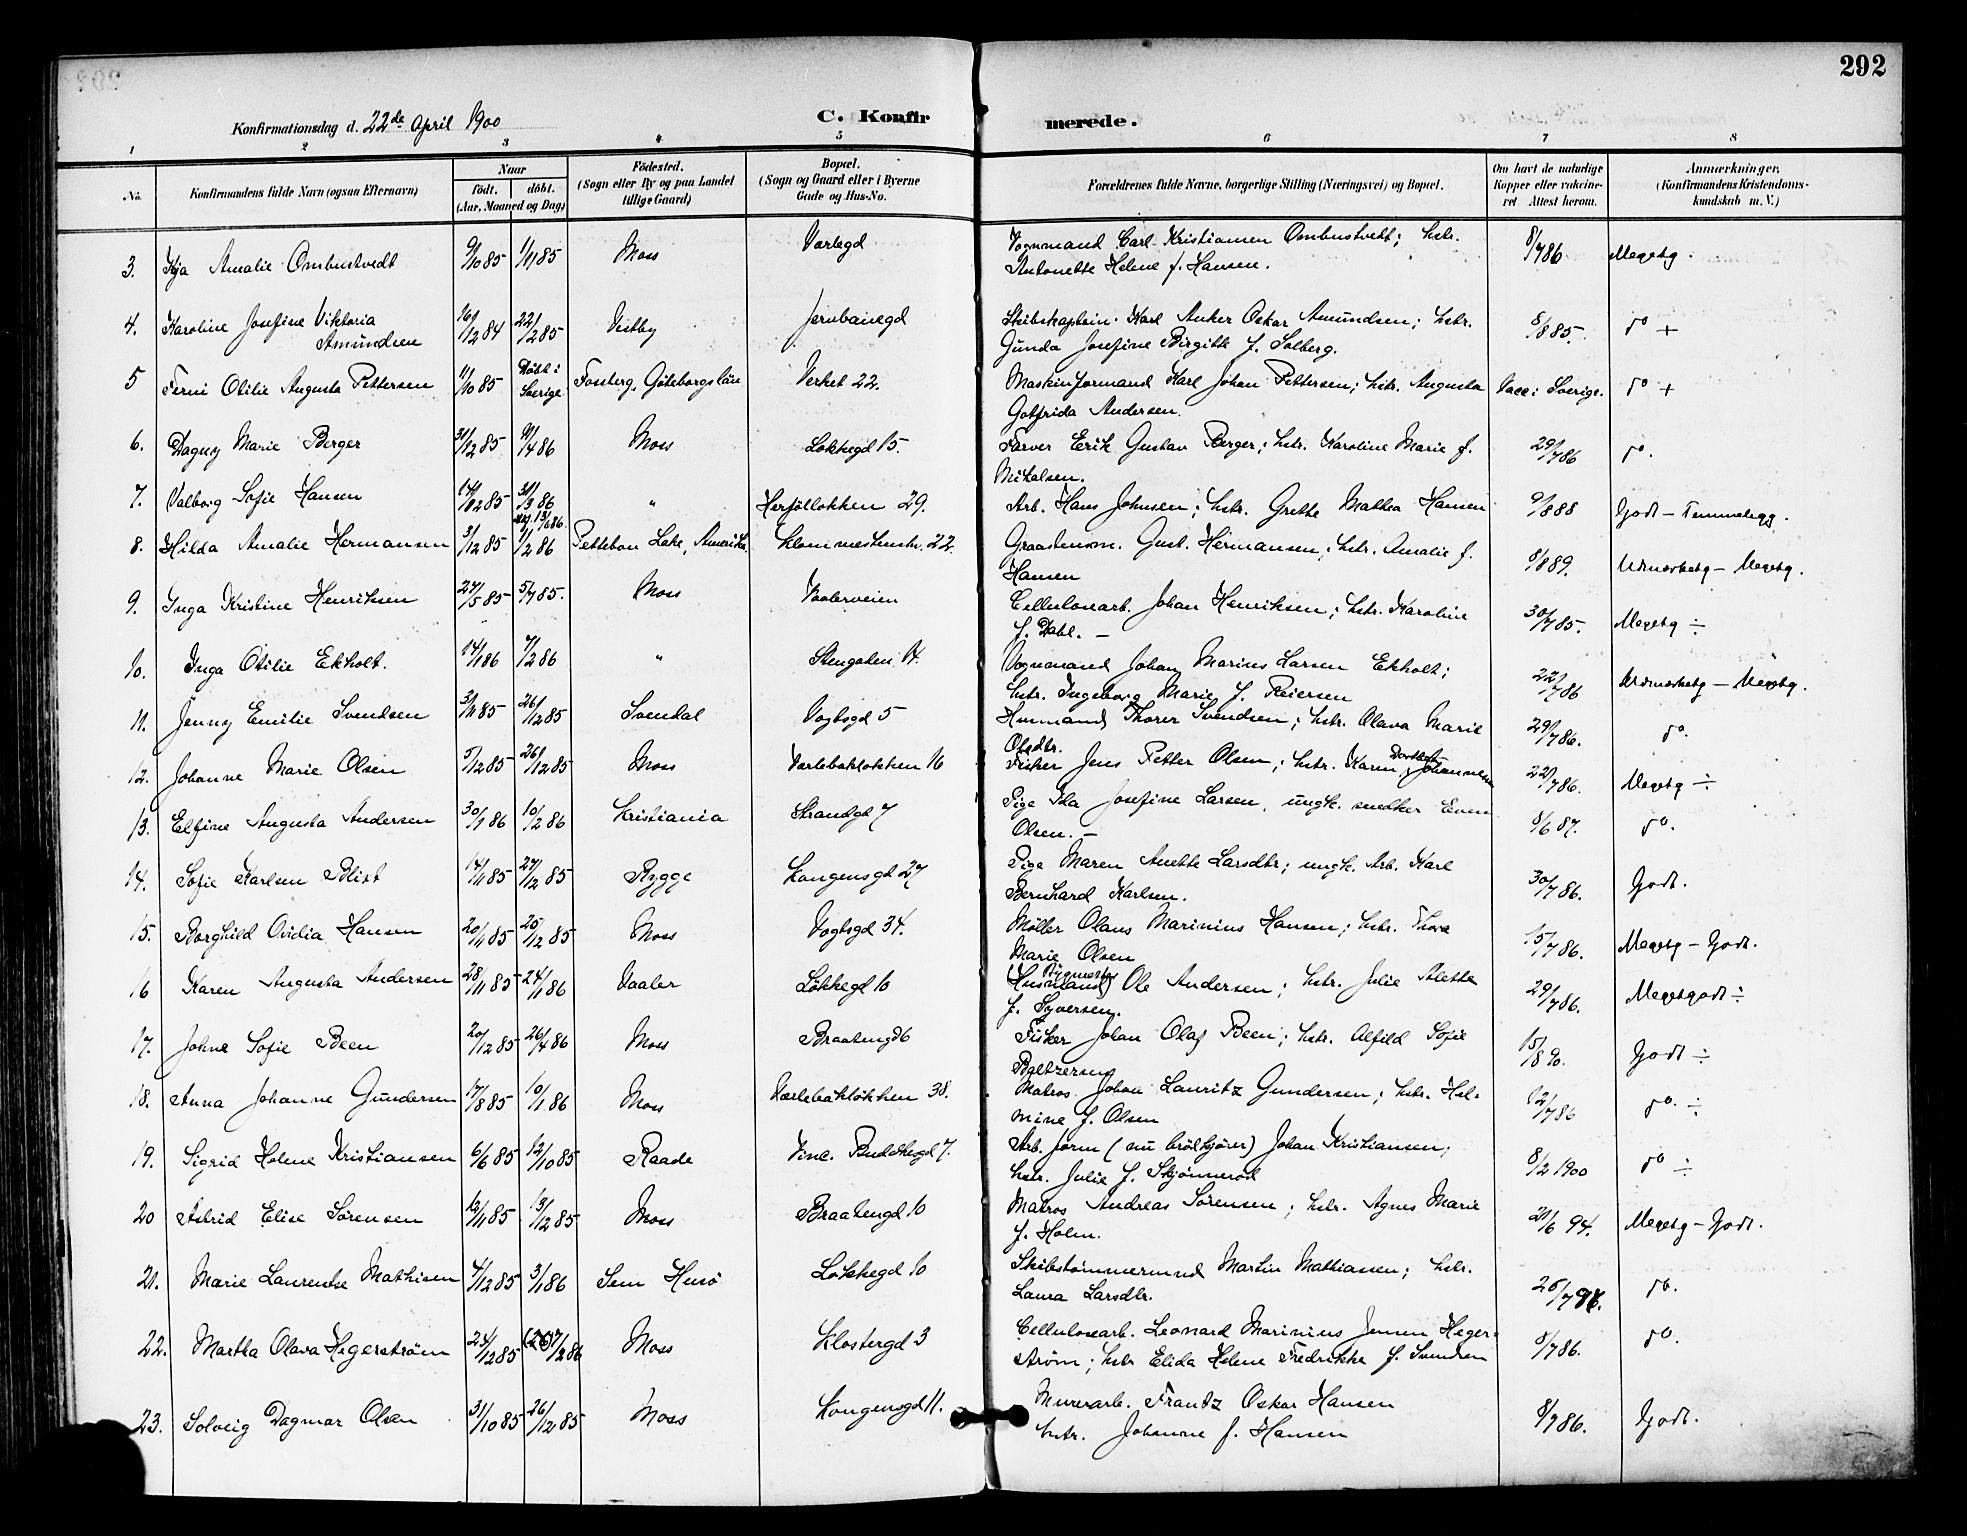 292
Konfirmationsdag d. 22de April 1900
C. Konfirmerede.
1 2 3 4 5 6 7 8
No. Konfirmandens fulde Navn (ogsaa Efternavn) Naar født. døbt. (Aar, Maaned og Dag) Fødested. (Sogn eller By og paa Landet tillige Gaard) Bopæl. (Sogn og Gaard eller i Byerne Gade og Hus-No. Forældrenes fulde Navne, borgerlige Stilling (Næringsvei) og Bopæl. Om havt de naturlige Kopper eller vakcineret Attest herom. Anmærkninger, (Konfirmandens Kristendomskundskab m. V.)
3. Kja Amalie Ombustvedt 9/10 85 1/11 85 Moss Varlegd Vognmand Carl Kristiansen Ombustvedt; hstr. 8/7 86 Megetg.
Antonette Helene f. Hansen.
4. Karoline Josefine Viktoria 16/12 84 22/2 85 Vestby Jernbanegd Skibskaptein Karl Anker Oskar Amundsen; hstr. 8/8 85. do +
Amundsen Gunda Josefine Birgitte f. Solberg.
5 Ferni Otilie Augusta Pettersen 11/10 85 Døbt i Sverige Fossberg, Göteborgslän Verket 22. Maskinformand Karl Johan Pettersen; hstr. Augusta Vacc. i Sverige. do +
Gotfrida Andersen.
6. Dagny Marie Berger 31/12 85 9/4 86 Moss Løkkegd 15. Farver Erik Gustav Berger; hstr. Karoline Marie f. 29/7 86 do.
Mikalsen.
7. Valborg Sofie Hansen 14/12 85 31/3 86 " Herfølløkken 29. Arb. Hans Johnsen; hstr. Grethe Mathea Hansen 9/8 88 Godt - Temmeligg.
8. Hilda Amalie Hermansen 3/12 85 1/2 86 Pettebon Lake, Amerika Klommestenstr. 22. Graastensm. Gust. Hermansen; hstr. Amalie f. 8/8 89. Udmærketg - Megetg.
Hansen
9. Inga Kristine Henriksen 27/5 85 5/7 85. Moss Vaalerveien Cellulosearb. Johan Henriksen; hstr. Karoline 30/7 85. Megetg ÷
f. Dahl. -
10. Inga Otilie Ekholt. 14/1 86 7/2 86 " Stengaten 14. Vognmand Johan Marius Larsen Ekholt; 22/7 86 Udmærketg - Megetg.
hstr. Ingeborg Marie f. Reiersen
11. Jenny Emilie Svendsen 3/11 85 26/12 85 Svendal Vogtsgd 5 Husmand Thorer Svendsen; hstr. Olava Marie 29/7 86. do.
Olsdtr.
12. Johanne Marie Olsen 5/12 85 26/12 85 Moss Varlebakløkken 16 Fisker Jens Petter Olsen; hstr. Karen Dorthea Johannesen 22/7 86. Megetg ÷
13. Elfine Augusta Andersen 30/1 86 10/2 86 Kristiania Strandgd 7 Pige Ida Josefine Larsen, ungk. snedker Even 8/6 87. do.
Olsen. -
14. Sofie Karlsen Blixt 14/11 85 27/12 85 Rygge Kongensgd 27 Pige Maren Anette Larsdtr; ungk. Arb. Karl 30/7 86. Godt.
Bernhard Karlsen.
15. Borghild Ovidia Hansen 20/11 85 25/12 85 Moss Vogtsgd 34. Møller Olaus Marinius Hansen; hstr. Thora 15/7 86. Megetg - Godt.
Marie Olsen
16 Karen Augusta Andersen 28/11 85 24/1 86 Vaaler Løkkegd 10 (Husmand) Ole Andersen; hstr. Julie Alette 29/7 86. Megetgodt ÷
f. Syversen.
17. Johne Sofie Been 20/12 85 26/4 86 Moss Braatengd 6 Fisker Johan Olaf Been; hstr. Alfild Sofie 15/8 90. Godt ÷
Baltzersen
18. Anna Johanne Gundersen 17/8 85 10/1 86 Moss Varlebakløkken 38. Matros Johan Lauritz Gundersen; hstr. Hel- 12/7 86 do. ÷
mine f. Olsen
19. Sigrid Helene Kristiansen 6/6 85 12/10 85 Raade Vinc. Buddesgd 7. Arb. form (nu brødkjører) Johan Kristiansen; 8/2 1900 do ÷
hstr. Julie f. Skjønnerød
20 Astrid Elise Sørensen 12/11 85 13/12 85 Moss Braatengd 10 Matros Andreas Sørensen; hstr. Agnes Marie 21/6 94. Megetg - Godt.
f. Holm.
21. Marie Laurentse Mathisen 4/12 85 3/1 86 Sem Husø Løkkegd 10 Skibstømmermnd Martin Mathiassen; hstr. 26/7 98. do.
Laura Larsdtr.
22. Martha Olava Hegerstrøm 24/12 85 7/2 86 Moss Klostergd 3 Cellulosearb. Leonard Marinius Jensen Heger- 8/7 86. do.
strøm; hstr Elida Helene Fredrikke f. Svendsen
23. Solveig Dagmar Olsen 31/10 85 26/12 85 Moss Kongensgd 11. Murerarb. Frantz Oskar Hansen 8/9 86. Godt.
hstr. Johanne f. Hansen